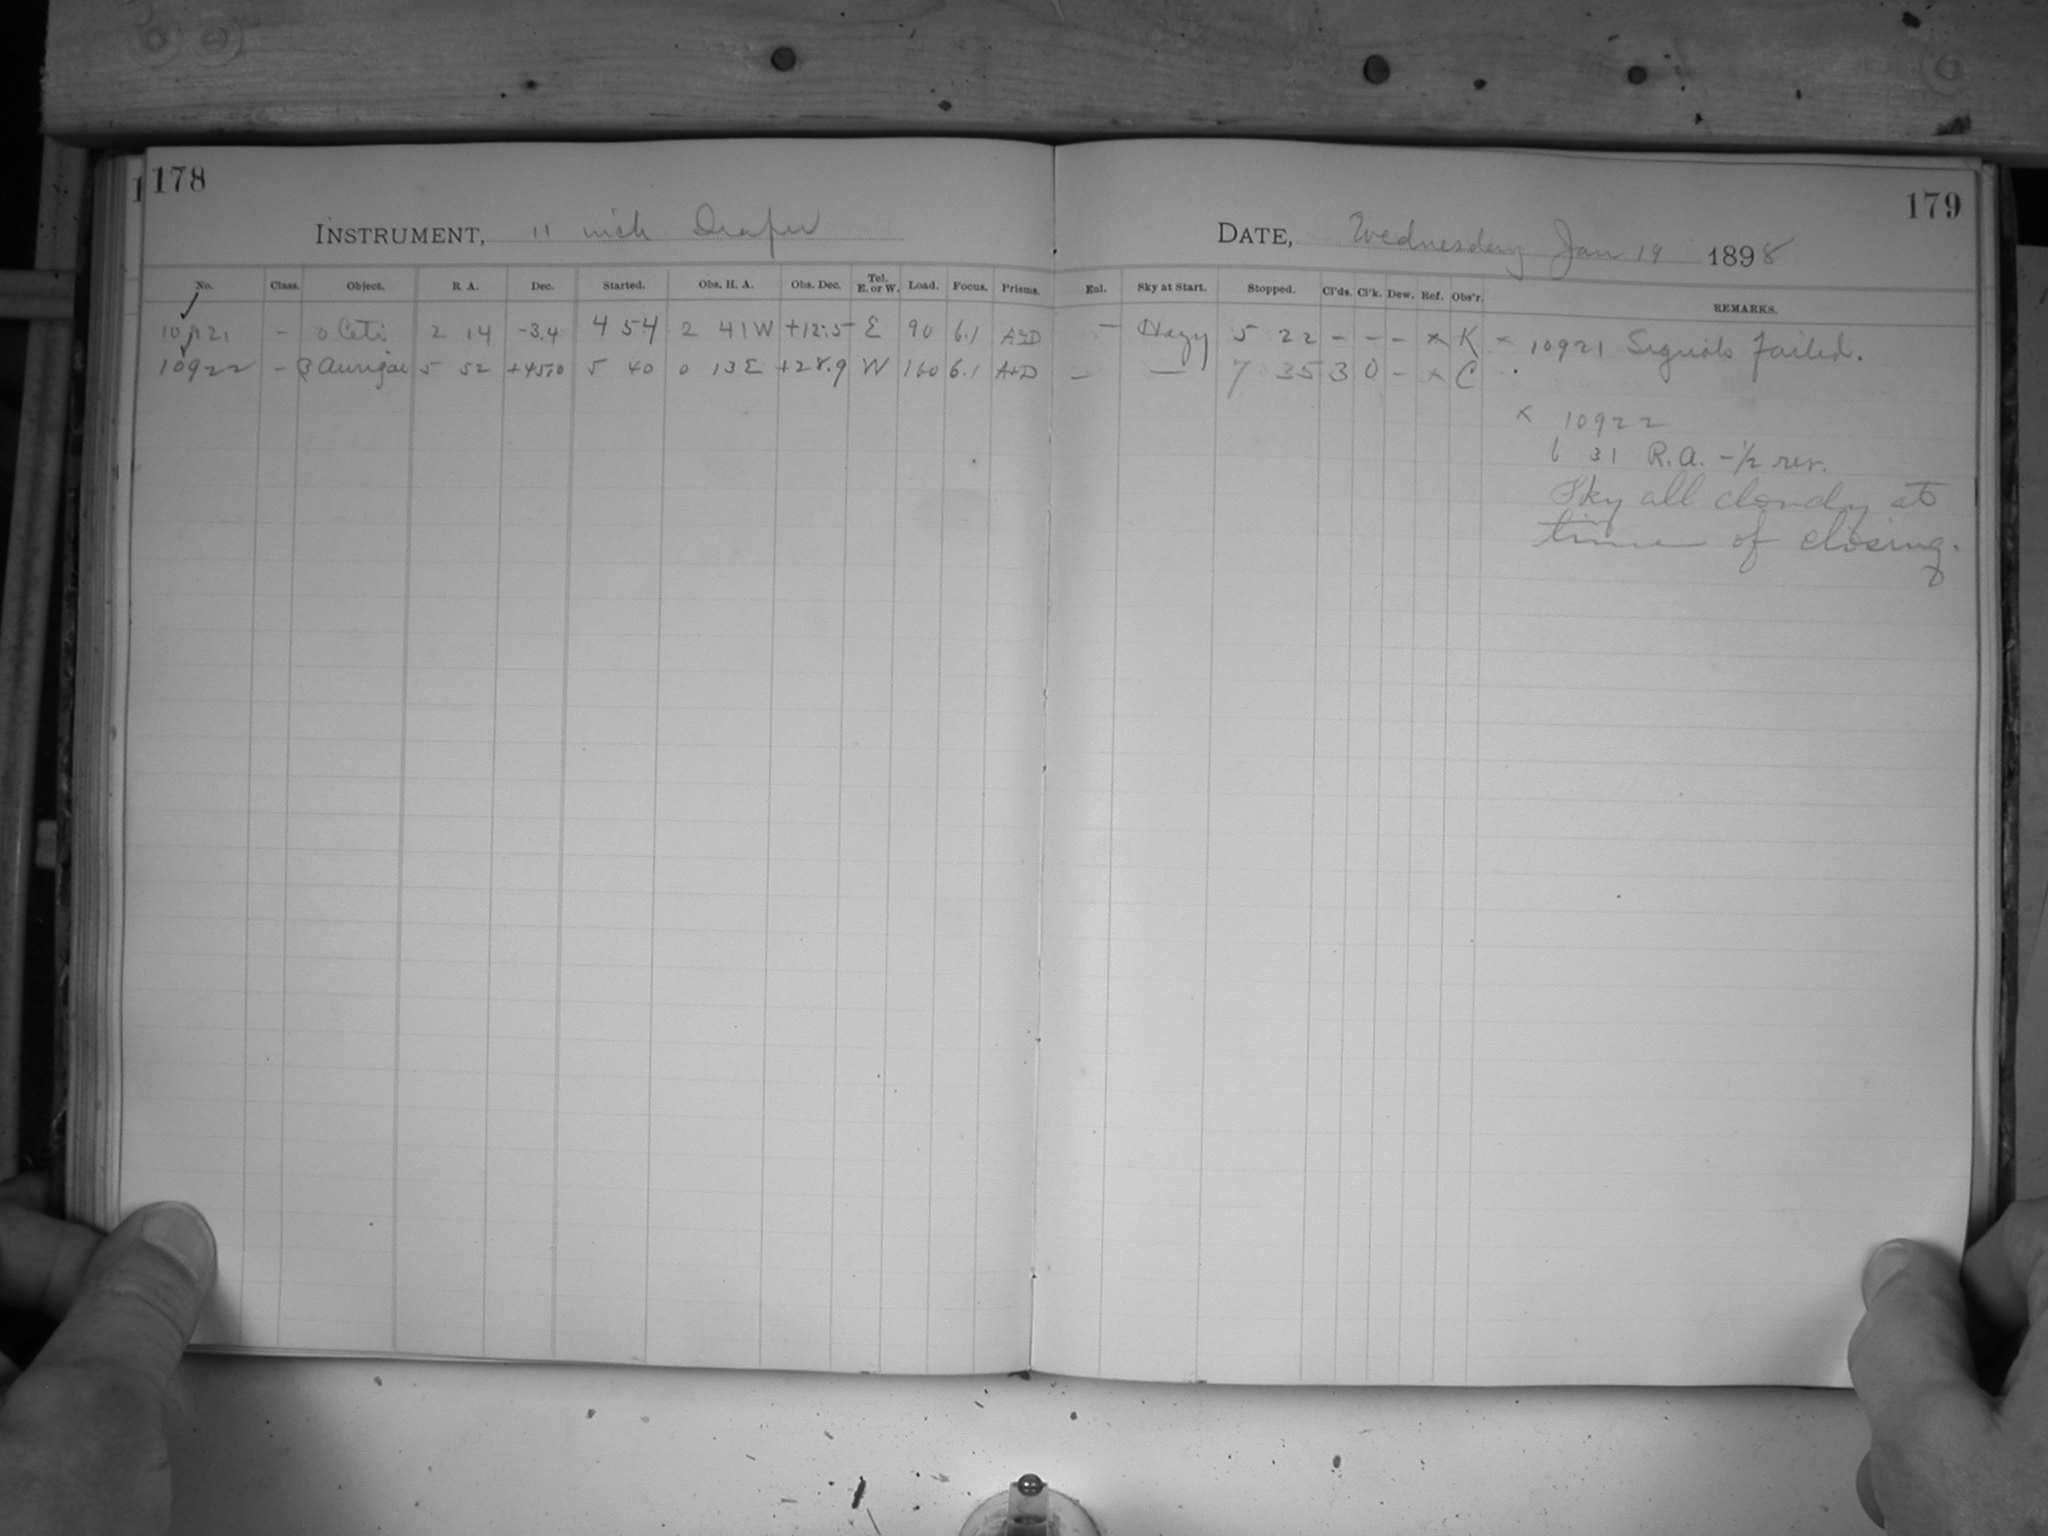 178
INSTRUMENT, 11 inch Draper
No. Class. Object. R. A. Dec. Started. Obs. H. A. Obs. Dec. Tel. E. or W. Load. Focus. Prisms.
10921 - o Ceti 2 14 -3.4 4 54 2 41 W +12.5 E 90 6.1 A+D
10922 - β Aurigae 5 52 +45.0 5 40 0 13 E +28.9 W 160 6.1 A+D
179
DATE, Wednesday Jan 19 1898
Enl. Sky at Start. Stopped. Cl'ds. Cl'k. Dew. Ref. Obs'r. REMARKS.
- Hazy 5 22 - - - x K x 10921 Signals failed.
- - 7 35 3 0 - x C
x 10922
6 31 R.A. -1/2 rev.
Sky all cloudy at
time of closing.